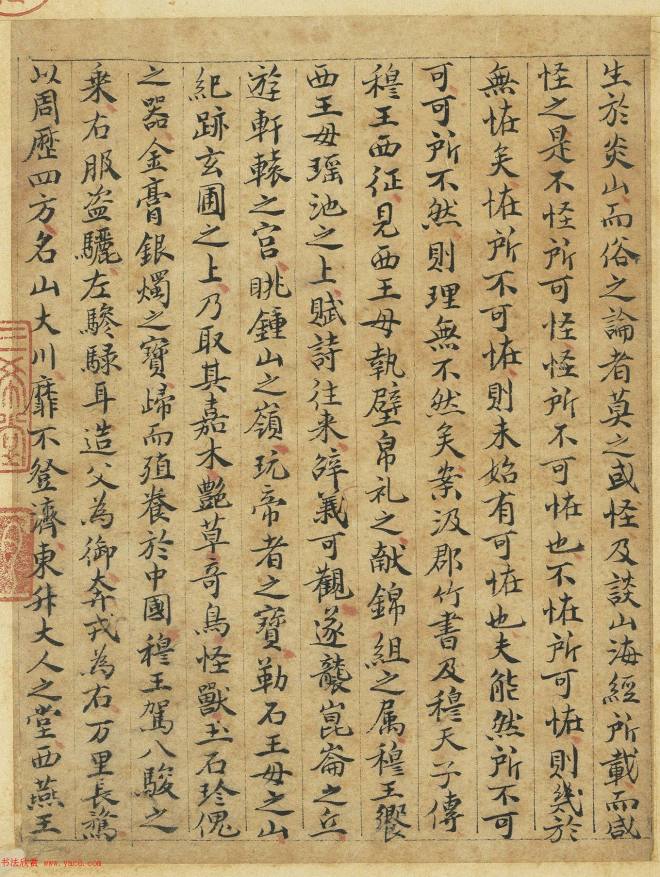 生於炎山而俗之論者莫之或怪及談山海經所載而咸
怪之是不怪所可怪怪所不可恠也不恠所可恠則幾於
無恠矣恠所不可恠則未始有可恠也夫能然所不可
可可所不然則理無不然矣案汲郡竹書及穆天子傳
穆王西征見西王母執璧帛礼之献錦組之属穆王饗
西王母瑶池之上賦詩往来辞義可觀遂襲崑崙之丘
遊軒轅之宮眺鍾山之嶺玩帝者之寶勒石王母之山
紀跡玄圃之上乃取其嘉木艶草奇鳥怪獸玉石珍傀
之器金膏銀燭之寶歸而殖養於中國穆王駕八駿之
乗右服盗驪左驂騄耳造父為御奔戎為右万里長騖
以周歷四方名山大川靡不登濟東升大人之堂西燕王
书法欣赏 www.yac8.com